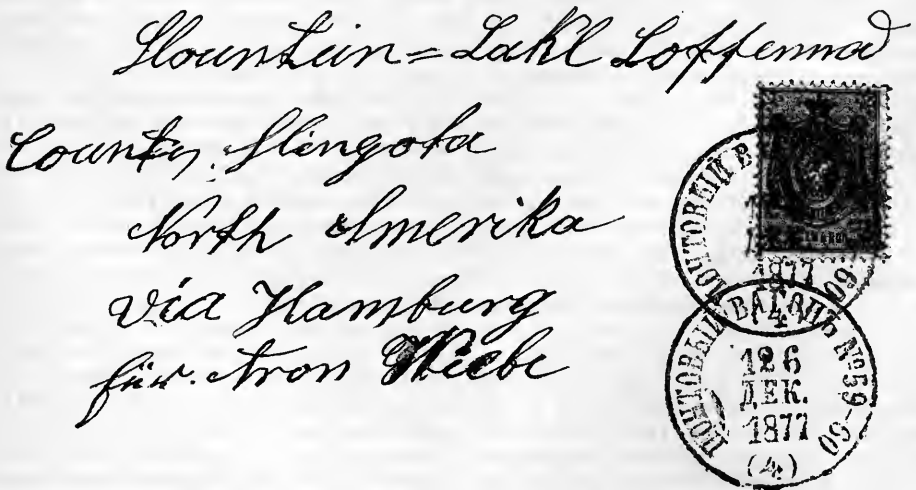 Mountein=Lakl Loffennad
County. Mingota
North Amerika
via Hamburg
für. Aron Wiebe
ПОЧТОВЫЙ В 60
1877
ПОЧТОВЫЙ ВАГОНЪ №59-60
126
ДЕК.
1877
(4)